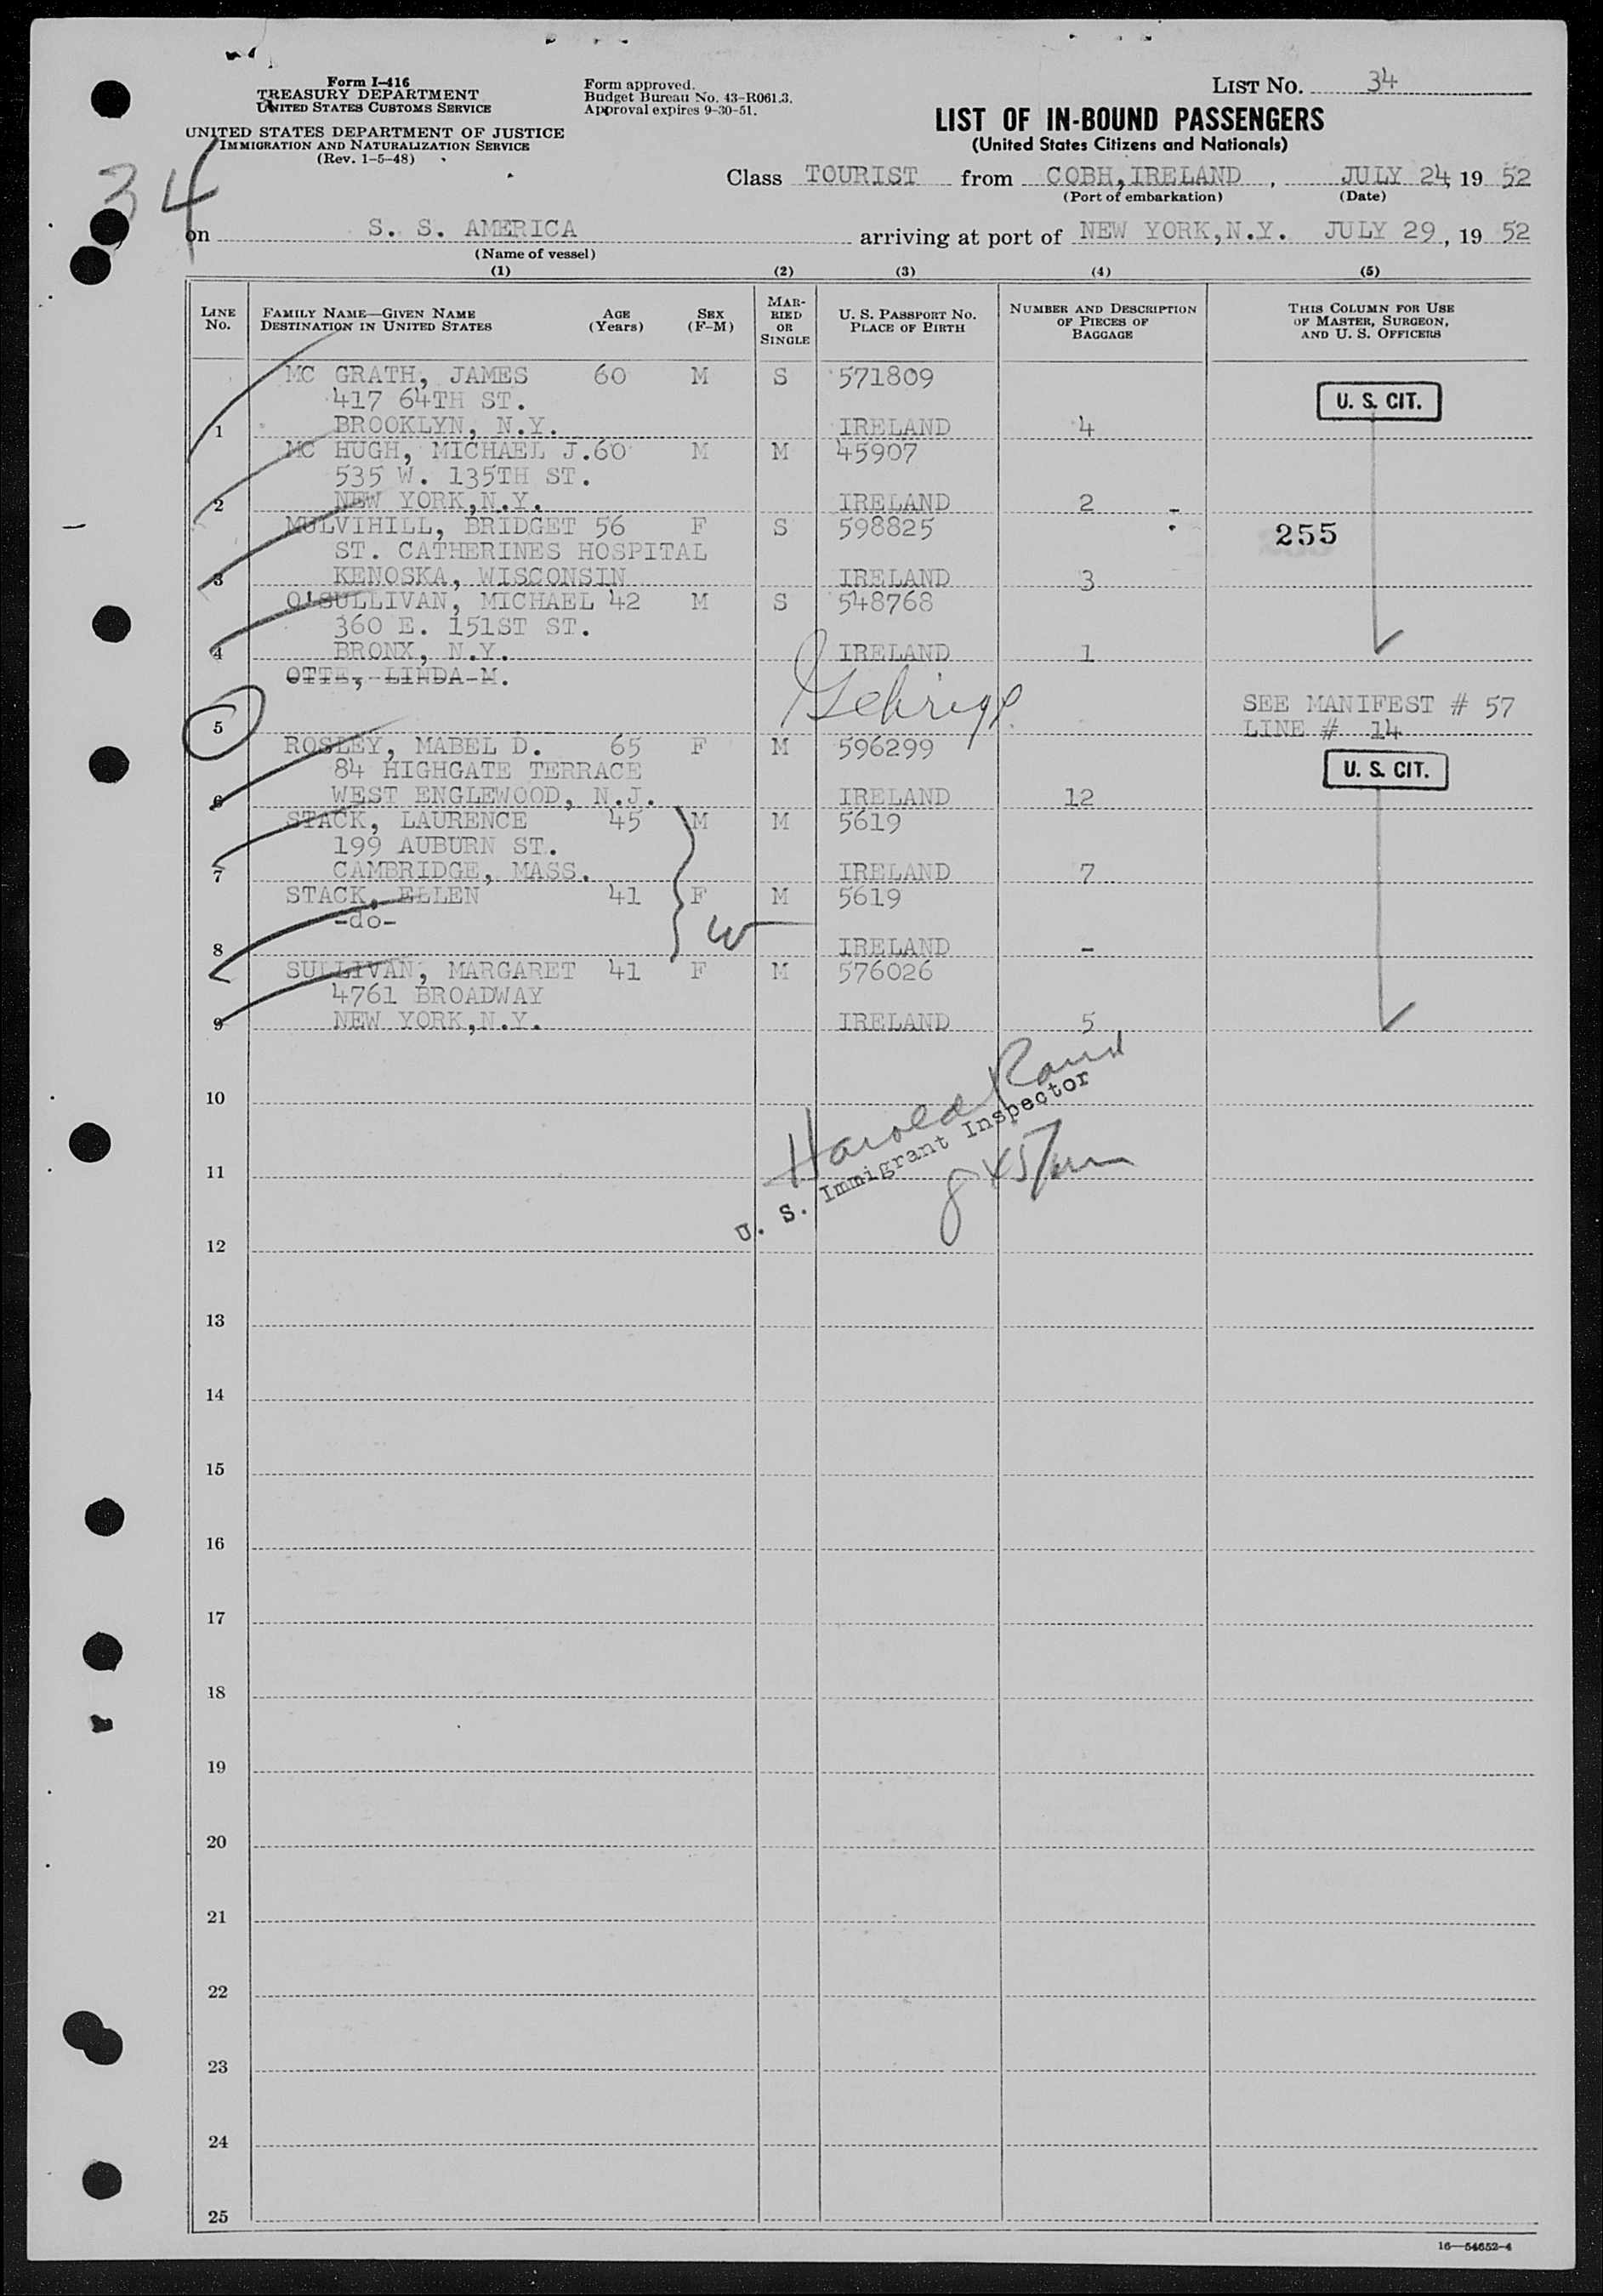 Form I-416
TREASURY DEPARTMENT
UNITED STATES CUSTOMS SERVICE
UNITED STATES DEPARTMENT OF JUSTICE
IMMIGRATION AND NATURALIZATION SERVICE
(Rev. 1-5-48)
Form approved.
Budget Bureau No. 43-R061.3.
Approval expires 9-30-51.
LIST No. 34
LIST OF IN-BOUND PASSENGERS
(United States Citizens and Nationals)
34
Class TOURIST from COBH, IRELAND, JULY 24, 19 52
(Port of embarkation) (Date)
on S. S. AMERICA arriving at port of NEW YORK, N.Y. JULY 29, 19 52
(Name of vessel)
(1) (2) (3) (4) (5)
LINE No. FAMILY NAME—GIVEN NAME DESTINATION IN UNITED STATES AGE (Years) SEX (F-M) MARRIED OR SINGLE U. S. PASSPORT No. PLACE OF BIRTH NUMBER AND DESCRIPTION OF PIECES OF BAGGAGE THIS COLUMN FOR USE OF MASTER, SURGEON, AND U. S. OFFICERS
MC GRATH, JAMES 60 M S 571809
417 64TH ST. U. S. CIT.
1 BROOKLYN, N.Y. IRELAND 4
MC HUGH, MICHAEL J. 60 M M 45907
535 W. 135TH ST.
2 NEW YORK, N.Y. IRELAND 2
MULVIHILL, BRIDGET 56 F S 598825 255
ST. CATHERINES HOSPITAL
3 KENOSKA, WISCONSIN IRELAND 3
O'SULLIVAN, MICHAEL 42 M S 548768
360 E. 151ST ST.
4 BRONX, N.Y. IRELAND 1
OTTE, LINDA M.
SEE MANIFEST # 57
5 LINE # 14
ROSLEY, MABEL D. 65 F M 596299
84 HIGHGATE TERRACE U. S. CIT.
6 WEST ENGLEWOOD, N.J. IRELAND 12
STACK, LAURENCE 45 M M 5619
199 AUBURN ST.
7 CAMBRIDGE, MASS. IRELAND 7
STACK, ELLEN 41 F M 5619
-do- W
8 IRELAND -
SULLIVAN, MARGARET 41 F M 576026
4761 BROADWAY
9 NEW YORK, N.Y. IRELAND 5
10
Harold
U. S. Immigrant Inspector
11
12
13
14
15
16
17
18
19
20
21
22
23
24
25
16—54652-4